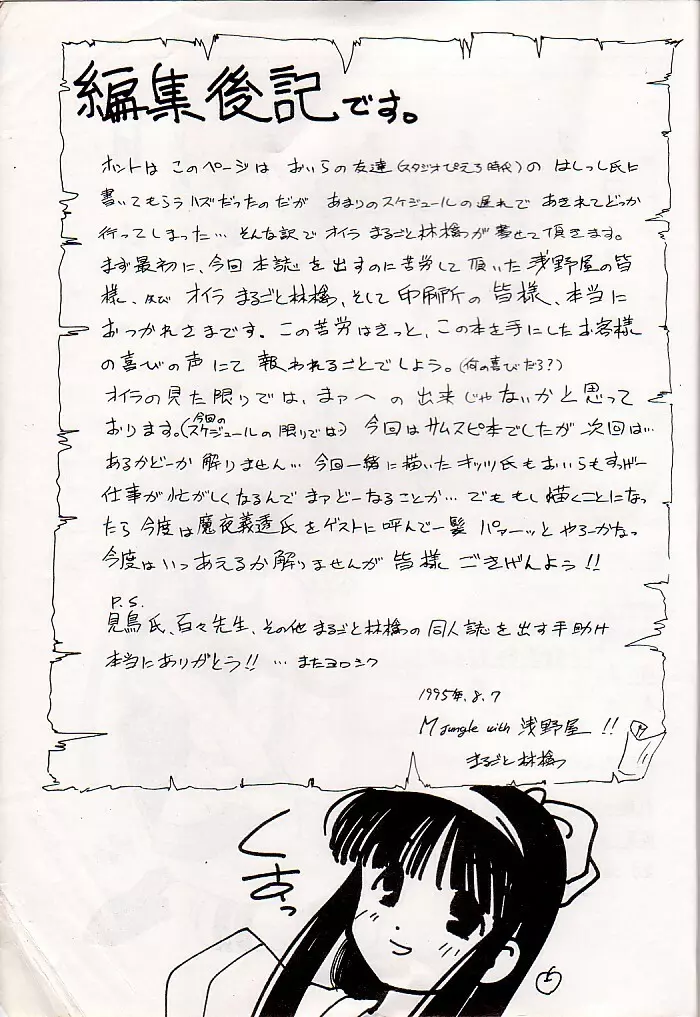 編集後記です。
ホントは このページは おいらの友達(スタジオぴえろ時代)の はしっし氏に
書いてもらうハズだったのだが あまりのスケジュールの遅れで あきれてどっか
行ってしまった… そんな訳で オイラ まるごと林檎が書せて頂きます。
まず最初に、今回 本誌を出すのに苦労して頂いた 浅野屋の皆
様、及び オイラ まるごと林檎、そして 印刷所の 皆様、本当に
おつかれさまです。この苦労はきっと、この本を手にしたお客様
の喜びの声にて 報われることでしょう。(何の喜びだろ?)
オイラの見た限りでは、まァへの出来じゃないかと思って
おります。(今回のスケジュールの限りでは) 今回はサムスピ本でしたが 次回は…
あるかどーか 解りません… 今回一緒に描いたキッツ氏もおいらもすっげー
仕事が忙がしくなるんで まァどーなることか… でも もし 描くことになっ
たら 今度は 魔夜義透氏 をゲストに呼んで一髪 パァーッと やろーかなっ
今度はいつあえるか解りませんが 皆様 ごきげんよう!!
P.S.
見鳥氏、百々先生、その他 まるごと林檎の 同人誌を出す手助け
本当にありがとう!! … またヨロシク
1995年.8.7
M Jungle with 浅野屋 !!
まるごと林檎